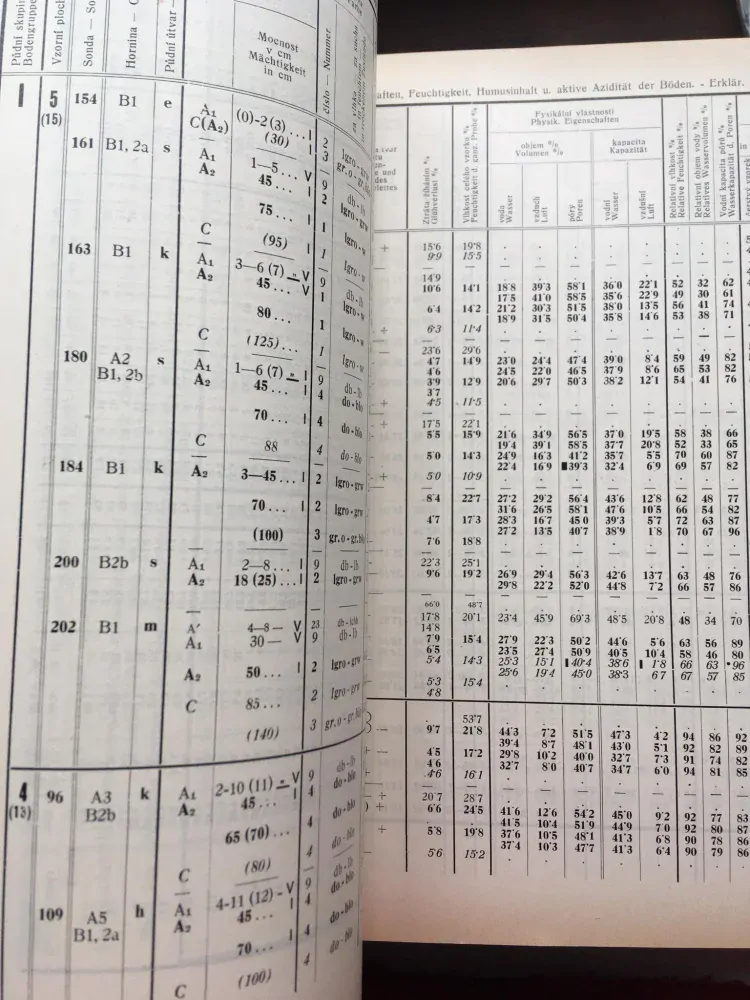 Půdní skupina
Bodengruppe
Vzorní plocha
Sonda — So
Hornina — G
Půdní útvar —
Mocnost
v cm
Mächtigkeit
in cm
číslo — Nummer
I 5 154 B1 e A1 (0)-2 (3) ... I 2
(15) C(A2) (30) 3
161 B1, 2a s A1 1—5 ... V 9
A2 45 ... I 2
75 ... I 1
C (95) 1
163 B1 k A1 3—6 (7) V 9
A2 45 ... I 1
80 ... 1
C (125) ... 1
180 A2 s A1 1—6 (7) V 9
B1, 2b A2 45 ... I 4 do-blo
70 ... I 4 do-blo
C 88
184 B1 k A2 3—45 ... I 2 lgro-grw
70 ... I 2 lgro-grw
(100) 3 gr.o-gr.blo
200 B2b s A1 2—8 ... I 9 db-lb
A2 18 (25) ... I 2 lgro-grw
202 B1 m A' 4—8— V 23
A1 30 — V 9 db-lb
A2 50 ... I 2 lgro-grw
C 85 ... 2 lgro-grw
(140) 3
4 96 A3 k A1 2-10 (11) V 9 db-lb
(13) B2b A2 45 ... I 4 do-blo
65 (70) ... 4 do-blo
C (80) 4 do-blo
109 A5 h A1 4-11 (12) - V 9 db-lb
B1, 2a A2 45 ... I 4 do-blo
70 ... I 4 do-blo
C (100) 4 do-blo
aften, Feuchtigkeit, Humusinhalt u. aktive Azidität der Böden. - Erklär.
Ztráta žíháním %
Glühverlust %
Vlhkost celého vzorku %
Feuchtigkeit d. ganz. Probe %
Fysikální vlastnosti
Physik. Eigenschaften
objem %
Volumen %
kapacita
Kapazität
voda
Wasser
vzduch
Luft
póry
Poren
vodní
Wasser
vzdušní
Luft
Relativní vlhkost %
Relative Feuchtigkeit %
Relativní objem vody %
Relatives Wasservolumen %
Vodní kapacita pórů %
Wasserkapazität d. Poren %
+ 15·6 19·8
9·9 15·5
14·9
10·6 14·1 18·8 39·3 58·1 36·0 22·1 52 32 62
17·5 41·0 58·5 35·6 22·9 49 30 61
6·4 14·2 21·2 30·3 51·5 38·0 13·5 56 41 74
18·9 31·5 50·4 35·8 14·6 53 38 71
+ 6·3 11·4
23·6 29·6
4·7 14·9 23·0 24·4 47·4 39·0 8·4 59 49 82
4·6 24·5 22·0 46·5 37·9 8·6 65 53 82
3·9 12·9 20·6 29·7 50·3 38·2 12·1 54 41 76
3·7
+ 4·5 11·5
+ 17·5 22·1
5·5 15·9 21·6 34·9 56·5 37·0 19·5 58 38 66
19·4 39·1 58·5 37·7 20·8 52 33 65
5·0 14·3 24·9 16·3 41·2 35·7 5·5 70 60 87
22·4 16·9 39·3 32·4 6·9 69 57 82
+ 5·0 10·9
8·4 22·7 27·2 29·2 56·4 43·6 12·8 62 48 77
31·6 26·5 58·1 47·6 10·5 66 54 82
4·7 17·3 28·3 16·7 45 0 39·3 5·7 72 63 87
27·2 13·5 40·7 38·9 1·8 70 67 96
7·6 18·8
22·3 25·1
9·6 19·2 26·9 29·4 56·3 42·6 13·7 63 48 76
29·8 22·2 52·0 44·8 7·2 66 57 86
66·0 48·7
17·8 20·1 23·4 45·9 69·3 48·5 20·8 48 34 70
14·8
7·9 15·4 27·9 22·3 50·2 44·6 5·6 63 56 89
6·5 23·5 27·4 50·9 40·5 10·4 58 46 80
5·4 14·3 25·3 15·1 40·4 38·6 1·8 66 63 96
25·6 19·4 45·0 38·3 6 7 67 57 85
5·3 15·4
4·8
53·7
9·7 21·8 44·3 7·2 51·5 47·3 4·2 94 86 92
39·4 8·7 48·1 43·0 5·1 92 82 89
4·5 17·2 29·8 10·2 40·0 32·7 7·3 91 74 82
4 6 32·7 8·0 40·7 34·7 6·0 94 81 85
4·6 16·1
+ 20·7 28·7
+ 6·6 24·5 41·6 12·6 54·2 45·0 9·2 92 77 83
41·5 10·4 51·9 44·9 7·0 92 80 87
+ 5·8 19·8 37·6 10·5 48·1 41·3 6·8 90 78 86
37·4 10·3 47·7 41·3 6·4 90 79 86
5·6 15·2